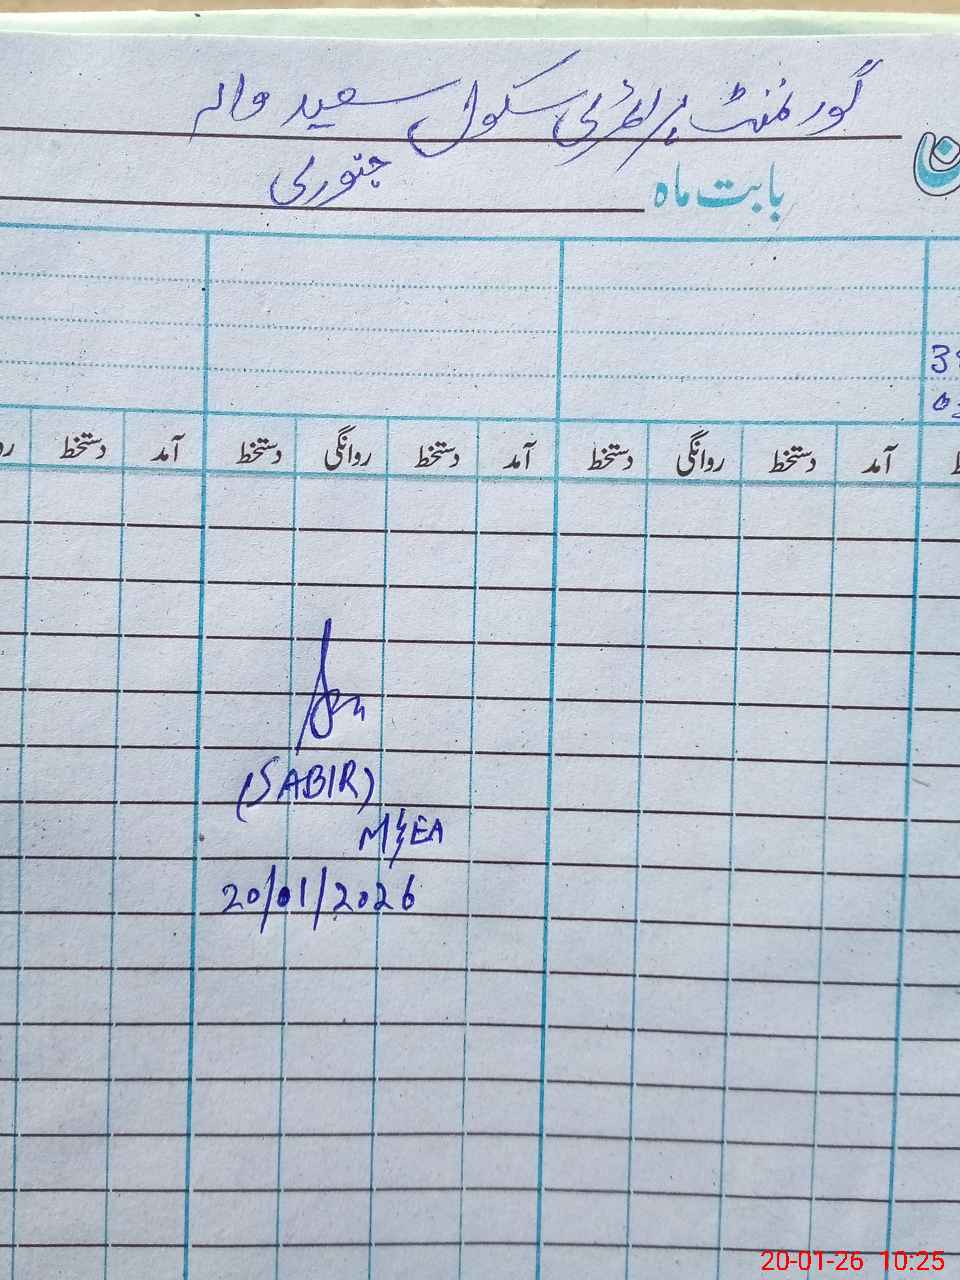 گورنمنٹ پرائمری سکول سعید والہ
بابت ماہ جنوری
آمد دستخط روانگی دستخط آمد دستخط روانگی دستخط آمد دستخط
(SABIR)
M&EA
20/01/2026
20-01-26 10:25